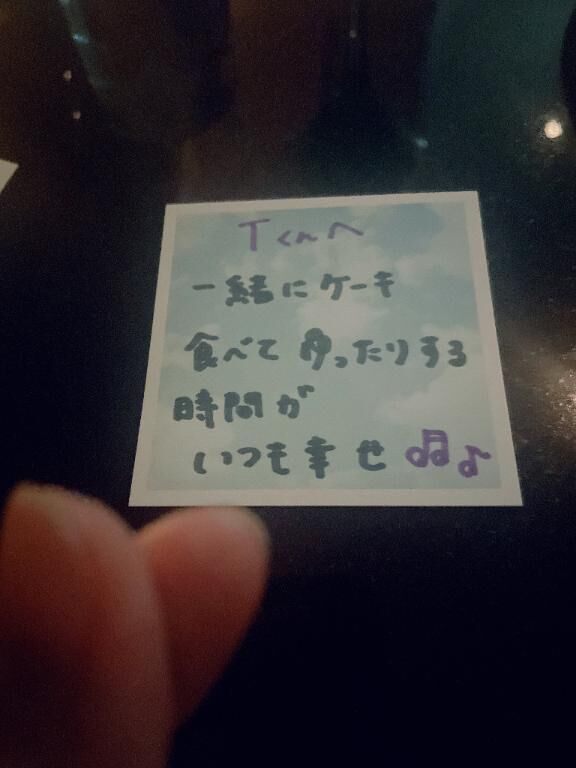 Tくんへ
一緒にケーキ
食べてゆったりする
時間が
いつも幸せ🎵♪